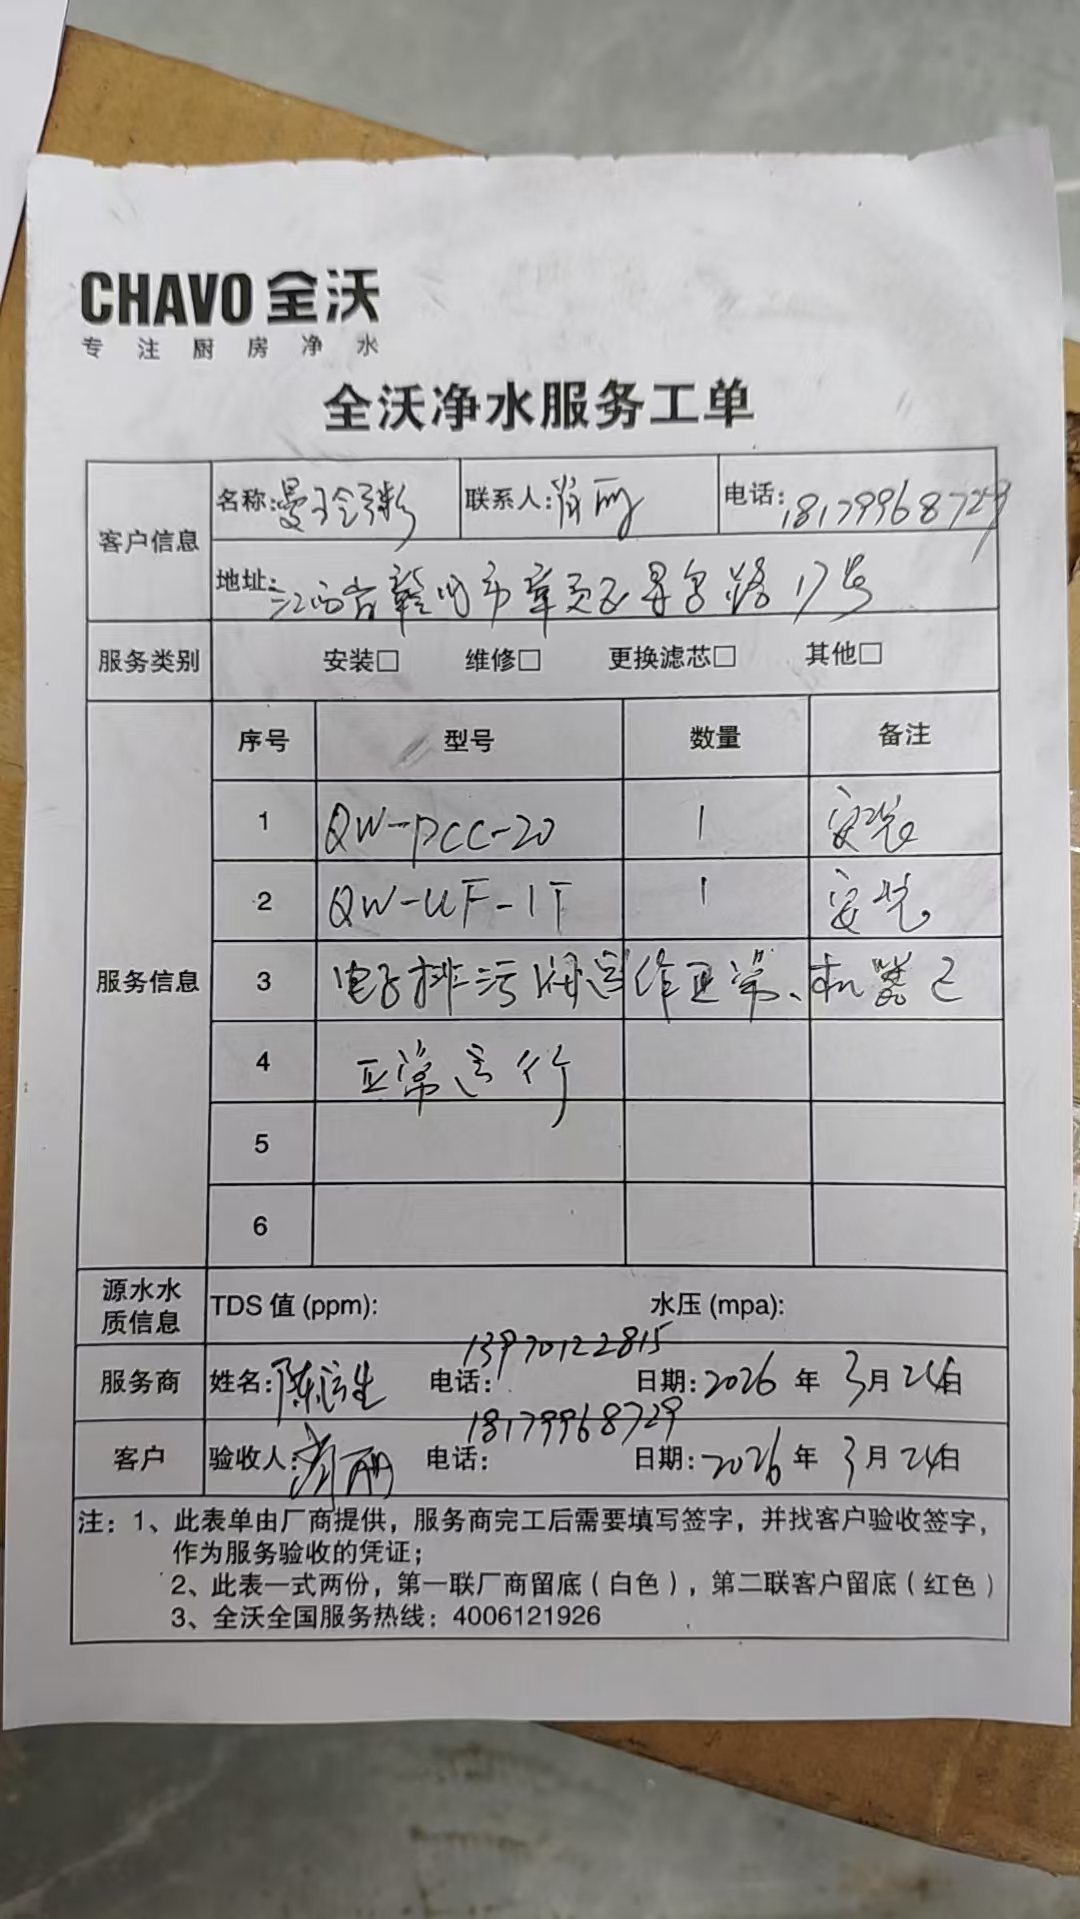 CHAVO 全沃
专注厨房净水
全沃净水服务工单
客户信息
名称: 曼玲粥 联系人: 肖丽 电话: 18179968729
地址: 江西省赣州市章贡区寻乌路17号
服务类别 安装□ 维修□ 更换滤芯□ 其他□
服务信息
序号 型号 数量 备注
1 QW-PCC-20 1 安装
2 QW-UF-1T 1 安装
3 电子排污阀运作正常、机器已
4 正常运行
5
6
源水水质信息 TDS 值 (ppm): 水压 (mpa):
服务商 姓名: 陈 生 电话: 13970122815 日期: 2026 年 3 月 24 日
客户 验收人: 肖丽 电话: 18179968729 日期: 2026 年 3 月 24 日
注：1、此表单由厂商提供，服务商完工后需要填写签字，并找客户验收签字，
作为服务验收的凭证；
2、此表一式两份，第一联厂商留底（白色），第二联客户留底（红色）
3、全沃全国服务热线：4006121926